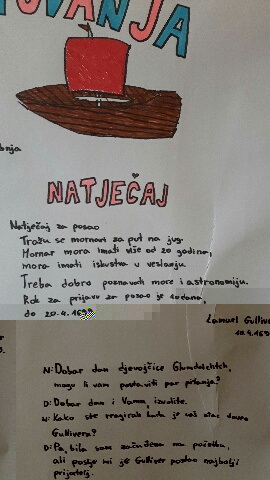 OVANJA
NATJEČAJ
Natječaj za posao
Tražu se mornari za put na jug.
Mornar mora imati više od 20 godina,
mora imati iskustva u veslanju
Treba dobro poznavati more i astronomiju.
Rok za prijavu za posao je
do 20.4.
Lemuel Gullive
N: Dobar dan djevojčice Glumdalclitch,
mogu li vam postaviti par pitanja?
D: Dobar dan i Vama, izvolite.
N: Kako ste reagirali kada je vaš otac
Gullivera?
D: Pa, bila sam začuđena na početku,
ali poslje mi je Gulliver postao najbolji
prijatelj.